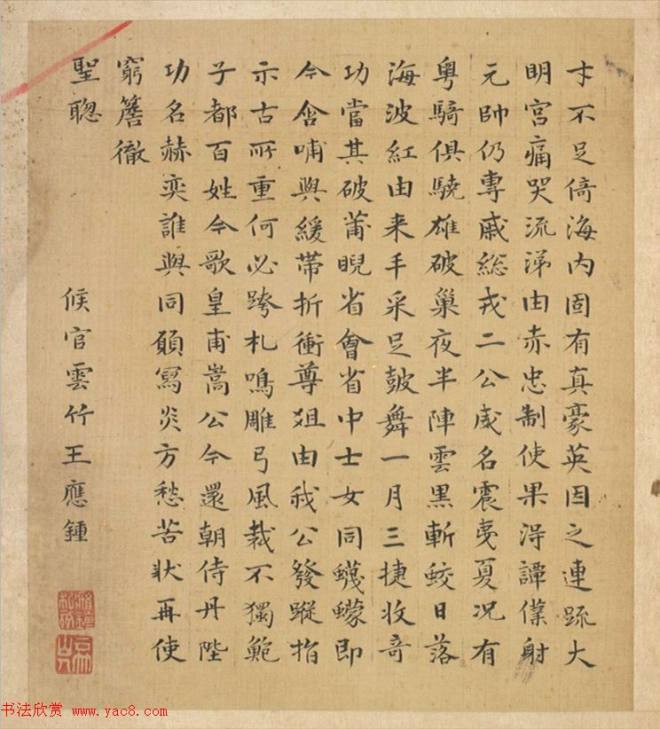 才不足倚海内固有真豪英因之連疏大
明宮痛哭流涕由赤忠制使果得譚僕射
元帥仍專戚總戎二公威名震夷夏況有
粵騎俱驍雄破巢夜半陣雲黑斬蛟日落
海波紅由来手采足皷舞一月三捷收奇
功當其破莆睨省會省中士女同蠛蠓即
今含哺與緩帶折衝尊俎由我公發蹤指
示古所重何必跨札鳴雕弓風裁不獨範
子都百姓今歌皇甫嵩公今還朝侍丹陛
功名赫奕誰與同願寫炎方愁苦狀再使
窮簷徹
聖聰
候官雲竹王應鍾
书法欣赏 www.yac8.com